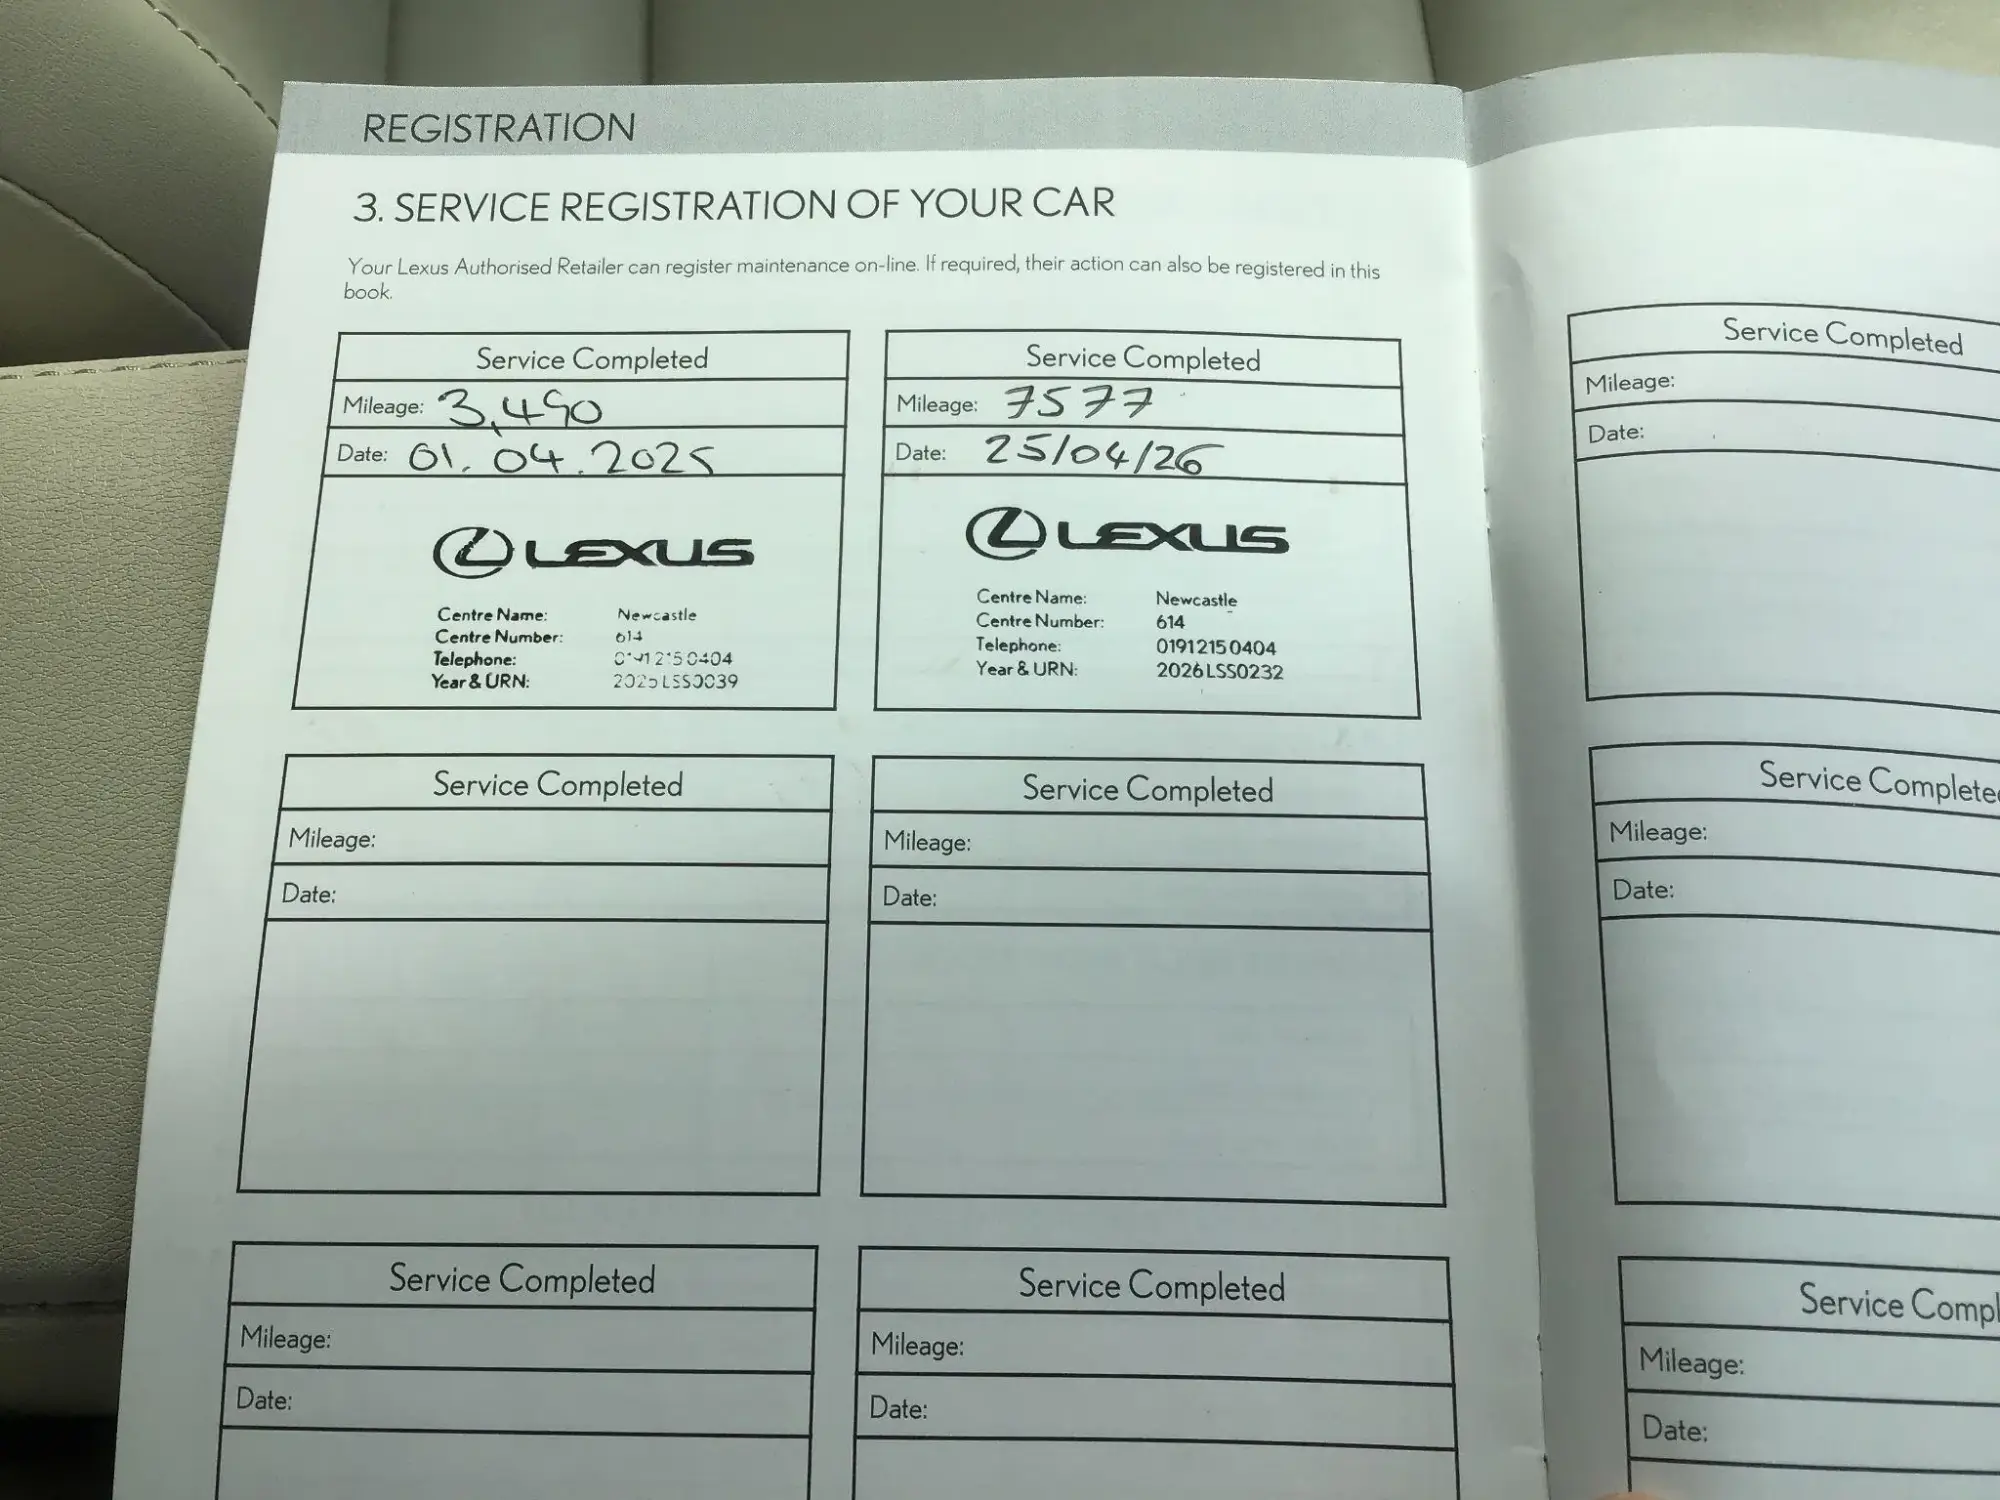 REGISTRATION
3. SERVICE REGISTRATION OF YOUR CAR
Your Lexus Authorised Retailer can register maintenance on-line. If required, their action can also be registered in this
book.
Service Completed
Mileage: 3,490
Date: 01.04.2025
LEXUS
Centre Name: Newcastle
Centre Number: 614
Telephone: 01912150404
Year & URN: 2025LSS0039
Service Completed
Mileage: 7577
Date: 25/04/26
LEXUS
Centre Name: Newcastle
Centre Number: 614
Telephone: 01912150404
Year & URN: 2026LSS0232
Service Completed
Mileage:
Date:
Service Completed
Mileage:
Date:
Service Completed
Mileage:
Date:
Service Completed
Mileage:
Date:
Service Completed
Mileage:
Date:
Service Complete
Mileage:
Date:
Service Compl
Mileage:
Date: